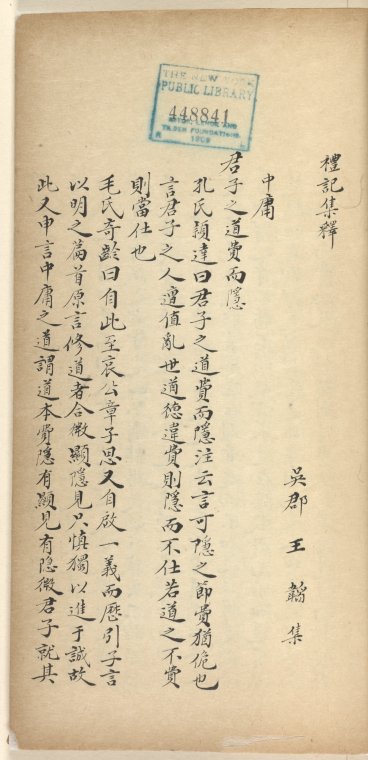 THE NEW YORK
PUBLIC LIBRARY
448841
ASTOR, LENOX AND
TILDEN FOUNDATIONS
1909
禮記集釋
吳郡 王韜集
中庸
君子之道費而隱
孔氏穎達曰君子之道費而隱注云言可隱之節費猶佹也
言君子之人遭值亂世道德違費則隱而不仕若道之不費
則當仕也
毛氏奇齡曰自此至哀公章子思又自啟一義而歷引子言
以明之篇首原言修道者合微顯隱見只慎獨以進于誠故
此又申言中庸之道謂道本費隱有顯見有隐微君子就其